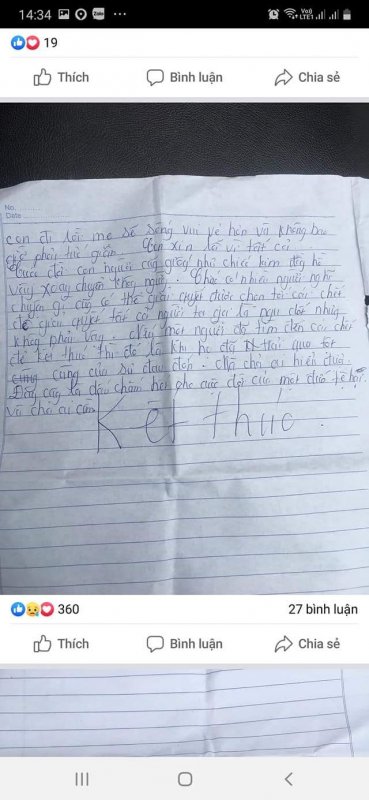 14:34
Zalo
Vo))
LTE1
19
Thích
Bình luận
Chia sẻ
No.
Date
con đi rồi mẹ sẽ sống vui vẻ hơn và không bao
giờ phải tức giận. Con xin lỗi vì tất cả.
Cuộc đời con người cũng giống như chiếc kim đồng hồ
vậy xoay chuyển không ngừng. Chắc có nhiều người nghĩ
chuyện gì cũng có thể giải quyết được chọn tới cái chết
để giải quyết tất cả người ta gọi là ngu dốt nhưng
không phải vậy. Nếu một người đã tìm đến cái chết
để kết thúc thì đó là khi họ đã trải qua tột
cùng của sự đau đớn. Mà chả ai hiển được.
Đây cũng là dấu chấm hết cho cuộc đời của một đứa tệ hại.
và chả ai cần
Kết thúc
360
27 bình luận
Thích
Bình luận
Chia sẻ